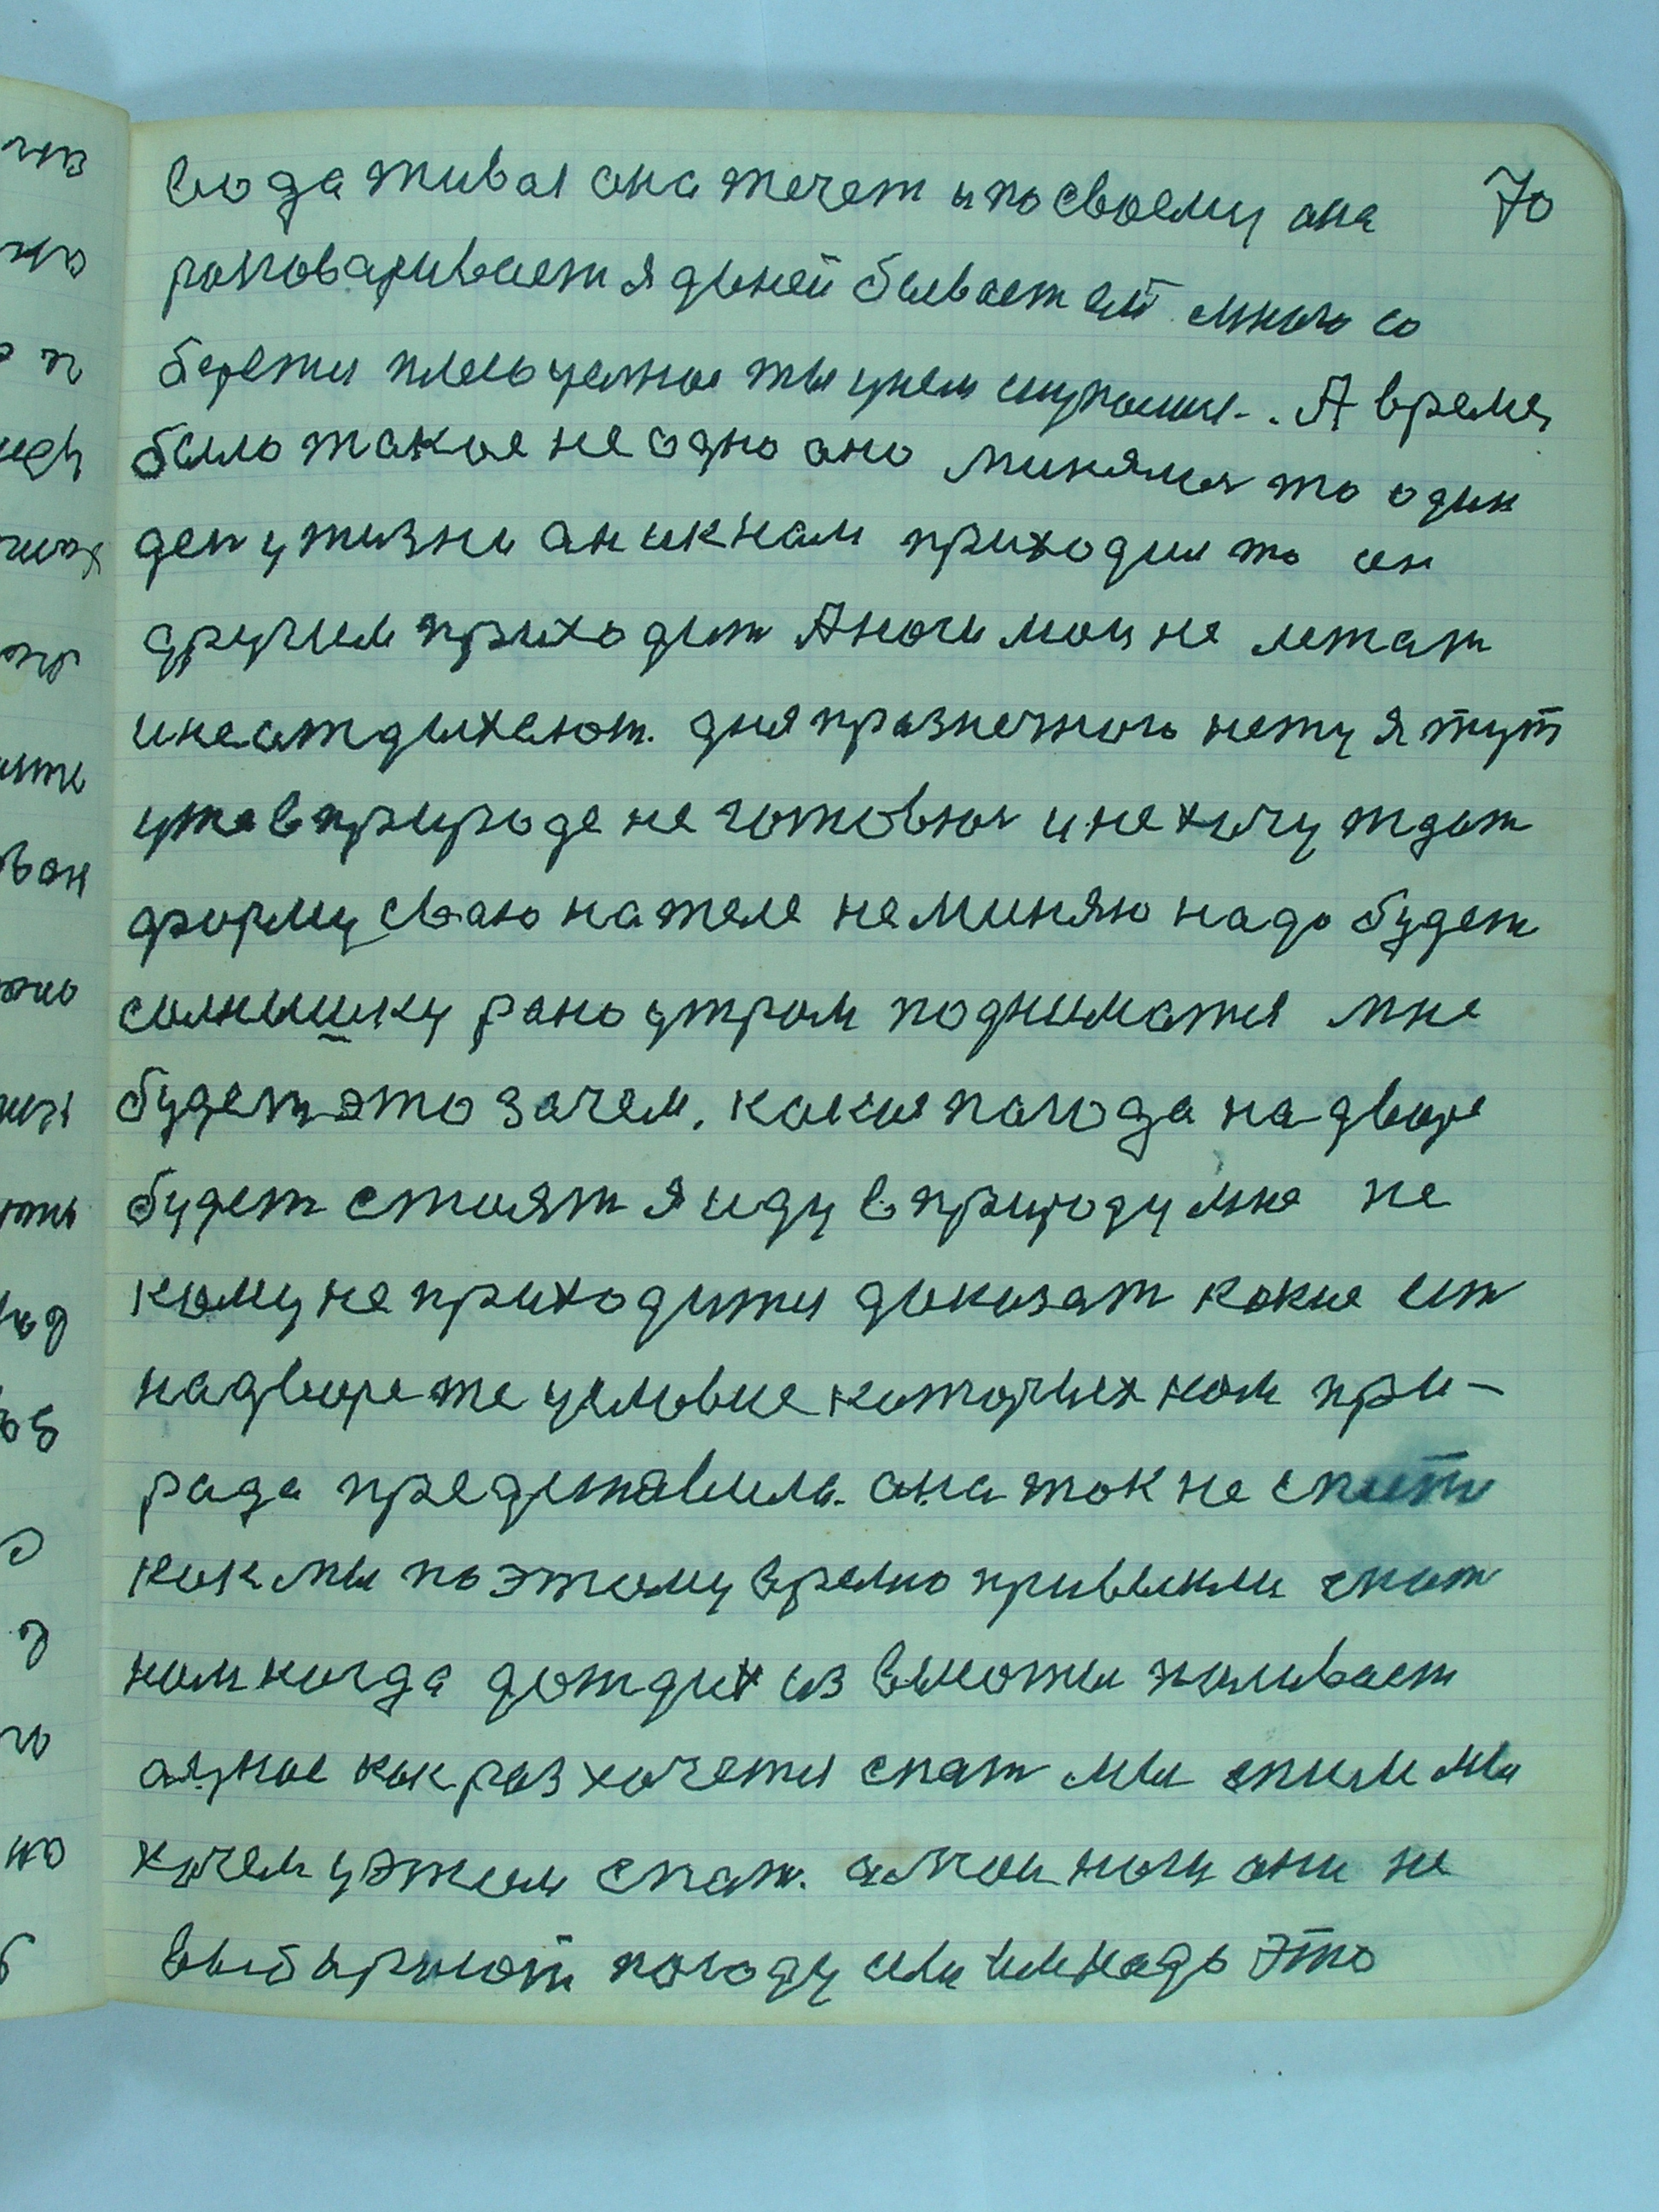 вода живая она течет и по своему она 70
разговаривает я дыней бывает ей много со
бережи
А время
было такое не одно оно минялся то один
ден у жизни аникнам приходил то он
другим приходит А ноги мои не лежат
и не отдыхают. дня празнечного нету я тут
уже в природе не готовлюся и не хочу ждат
форму сваю на теле не миняю надо будет
солнышку рано утром подниматся мне
будет это зачем. какая погода на дворе
будет стоят я иду в природу мне не
кому не приходится доказат какие ест
надворе те условие которых нам при-
рода представила. она так не спит
как мы по этому время привыкли спат
нам когда дождик из высоты поливает
а уже как раз хочется спат мы спим мы
хочем у этим спат. а мои ноги они не
выбырают погоду или им надо это